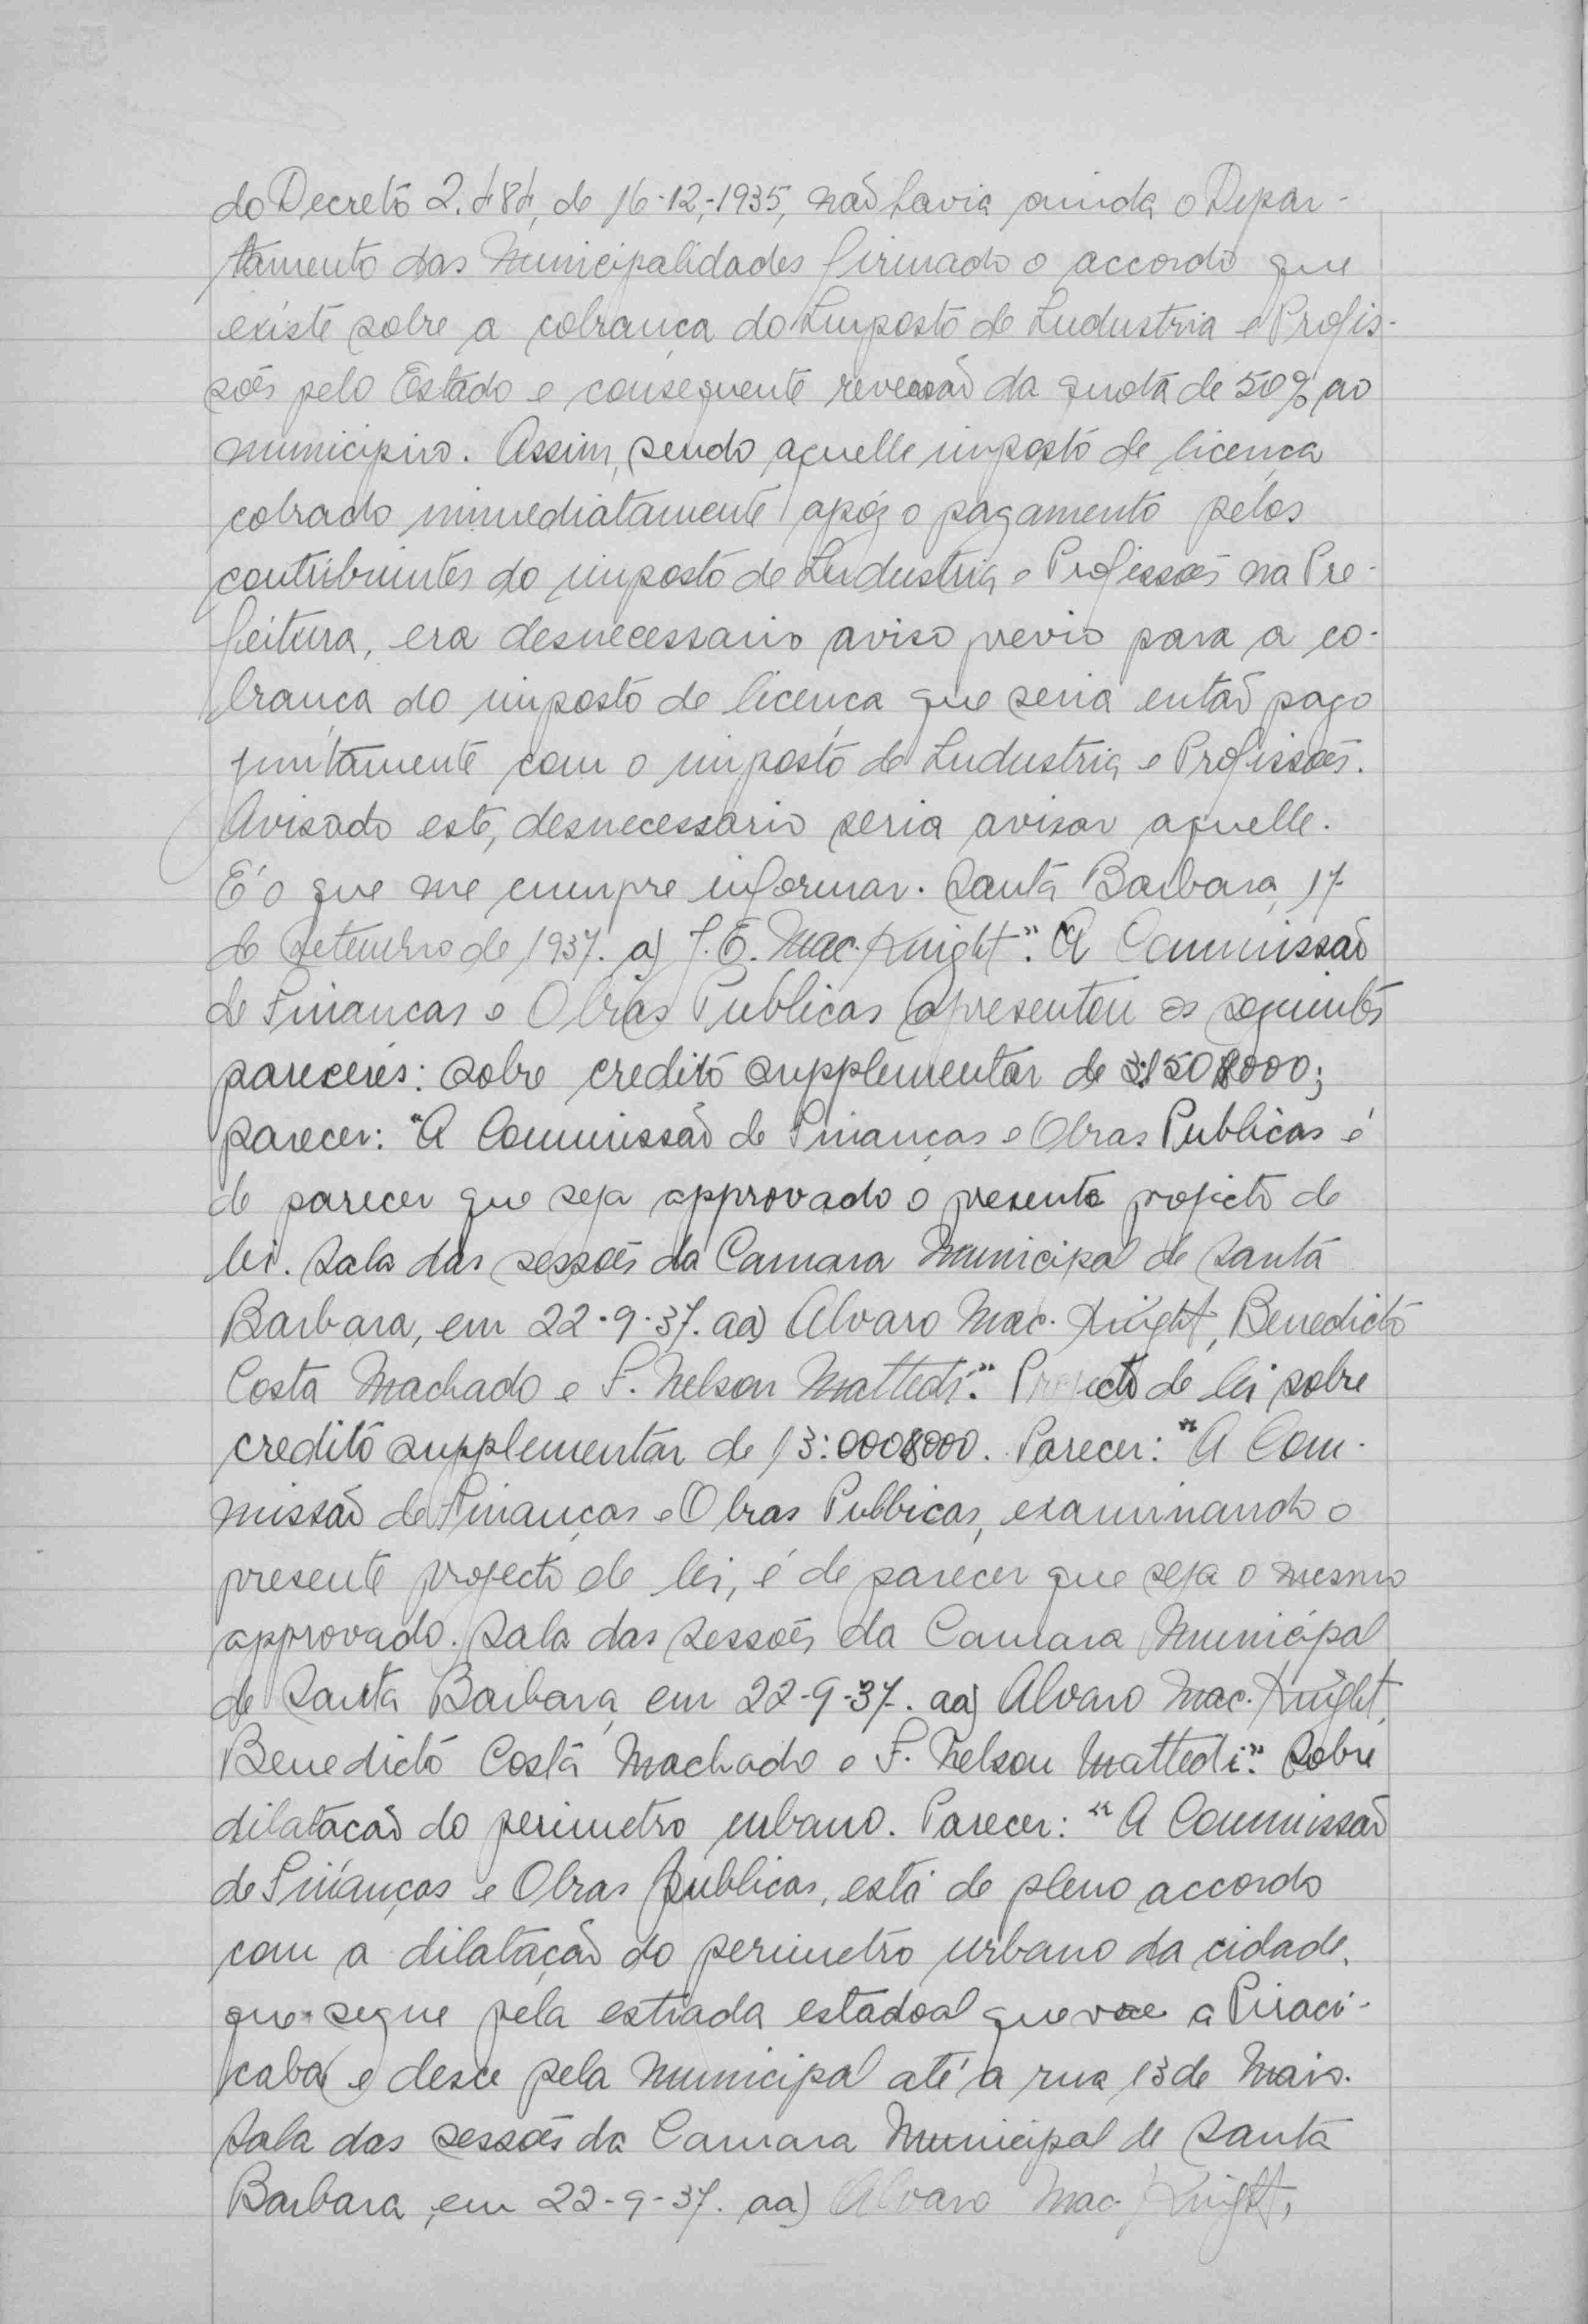 do Decreto 2.484, de 16-12-1935, não havia ainda o Depar-
tamento das Municipalidades firmado o accordo que
existe sobre a cobrança do Imposto de Industria e Profis-
sões pelo Estado e consequente reversão da quota de 50% ao
municipio. Assim, sendo aquelle imposto de licença
cobrado immediatamente após o pagamento pelos
contribuintes do imposto de Industria e Profissões na Pre-
feitura, era desnecessario aviso previo para a co-
brança do imposto de licença que seria então pago
juntamente com o imposto de Industria e Profissões.
Avisado este, desnecessario seria avisar aquelle.
E' o que me cumpre informar. Santa Barbara, 17
de Setembro de 1937. a) J. E. Mac-Knight". A Commissão
de Finanças e Obras Publicas apresentou os seguintes
pareceres: sobre credito supplementar de 3:150$000;
parecer: "A Commissão de Finanças e Obras Publicas é
de parecer que seja approvado o presente projecto de
lei. Sala das sessões da Camara Municipal de Santa
Barbara, em 22-9-37. aa) Alvaro Mac-Knight, Benedicto
Costa Machado e F. Nelson Mattedi". Projecto de lei sobre
credito supplementar de 13:000$000. Parecer: "A Com-
missão de Finanças e Obras Publicas, examinando o
presente projecto de lei, é de parecer que seja o mesmo
approvado. Sala das Sessões da Camara Municipal
de Santa Barbara, em 22-9-37. aa) Alvaro Mac-Knight,
Benedicto Costa Machado e F. Nelson Mattedi". Sobre
dilatação do perimetro urbano. Parecer: "A Commissão
de Finanças e Obras Publicas, está de pleno accordo
com a dilatação do perimetro urbano da cidade,
que segue pela estrada estadoal que vae a Piraci-
caba e desce pela Municipal até a rua 13 de Maio.
Sala das sessões da Camara Municipal de Santa
Barbara, em 22-9-37. aa) Alvaro Mac-Knight,